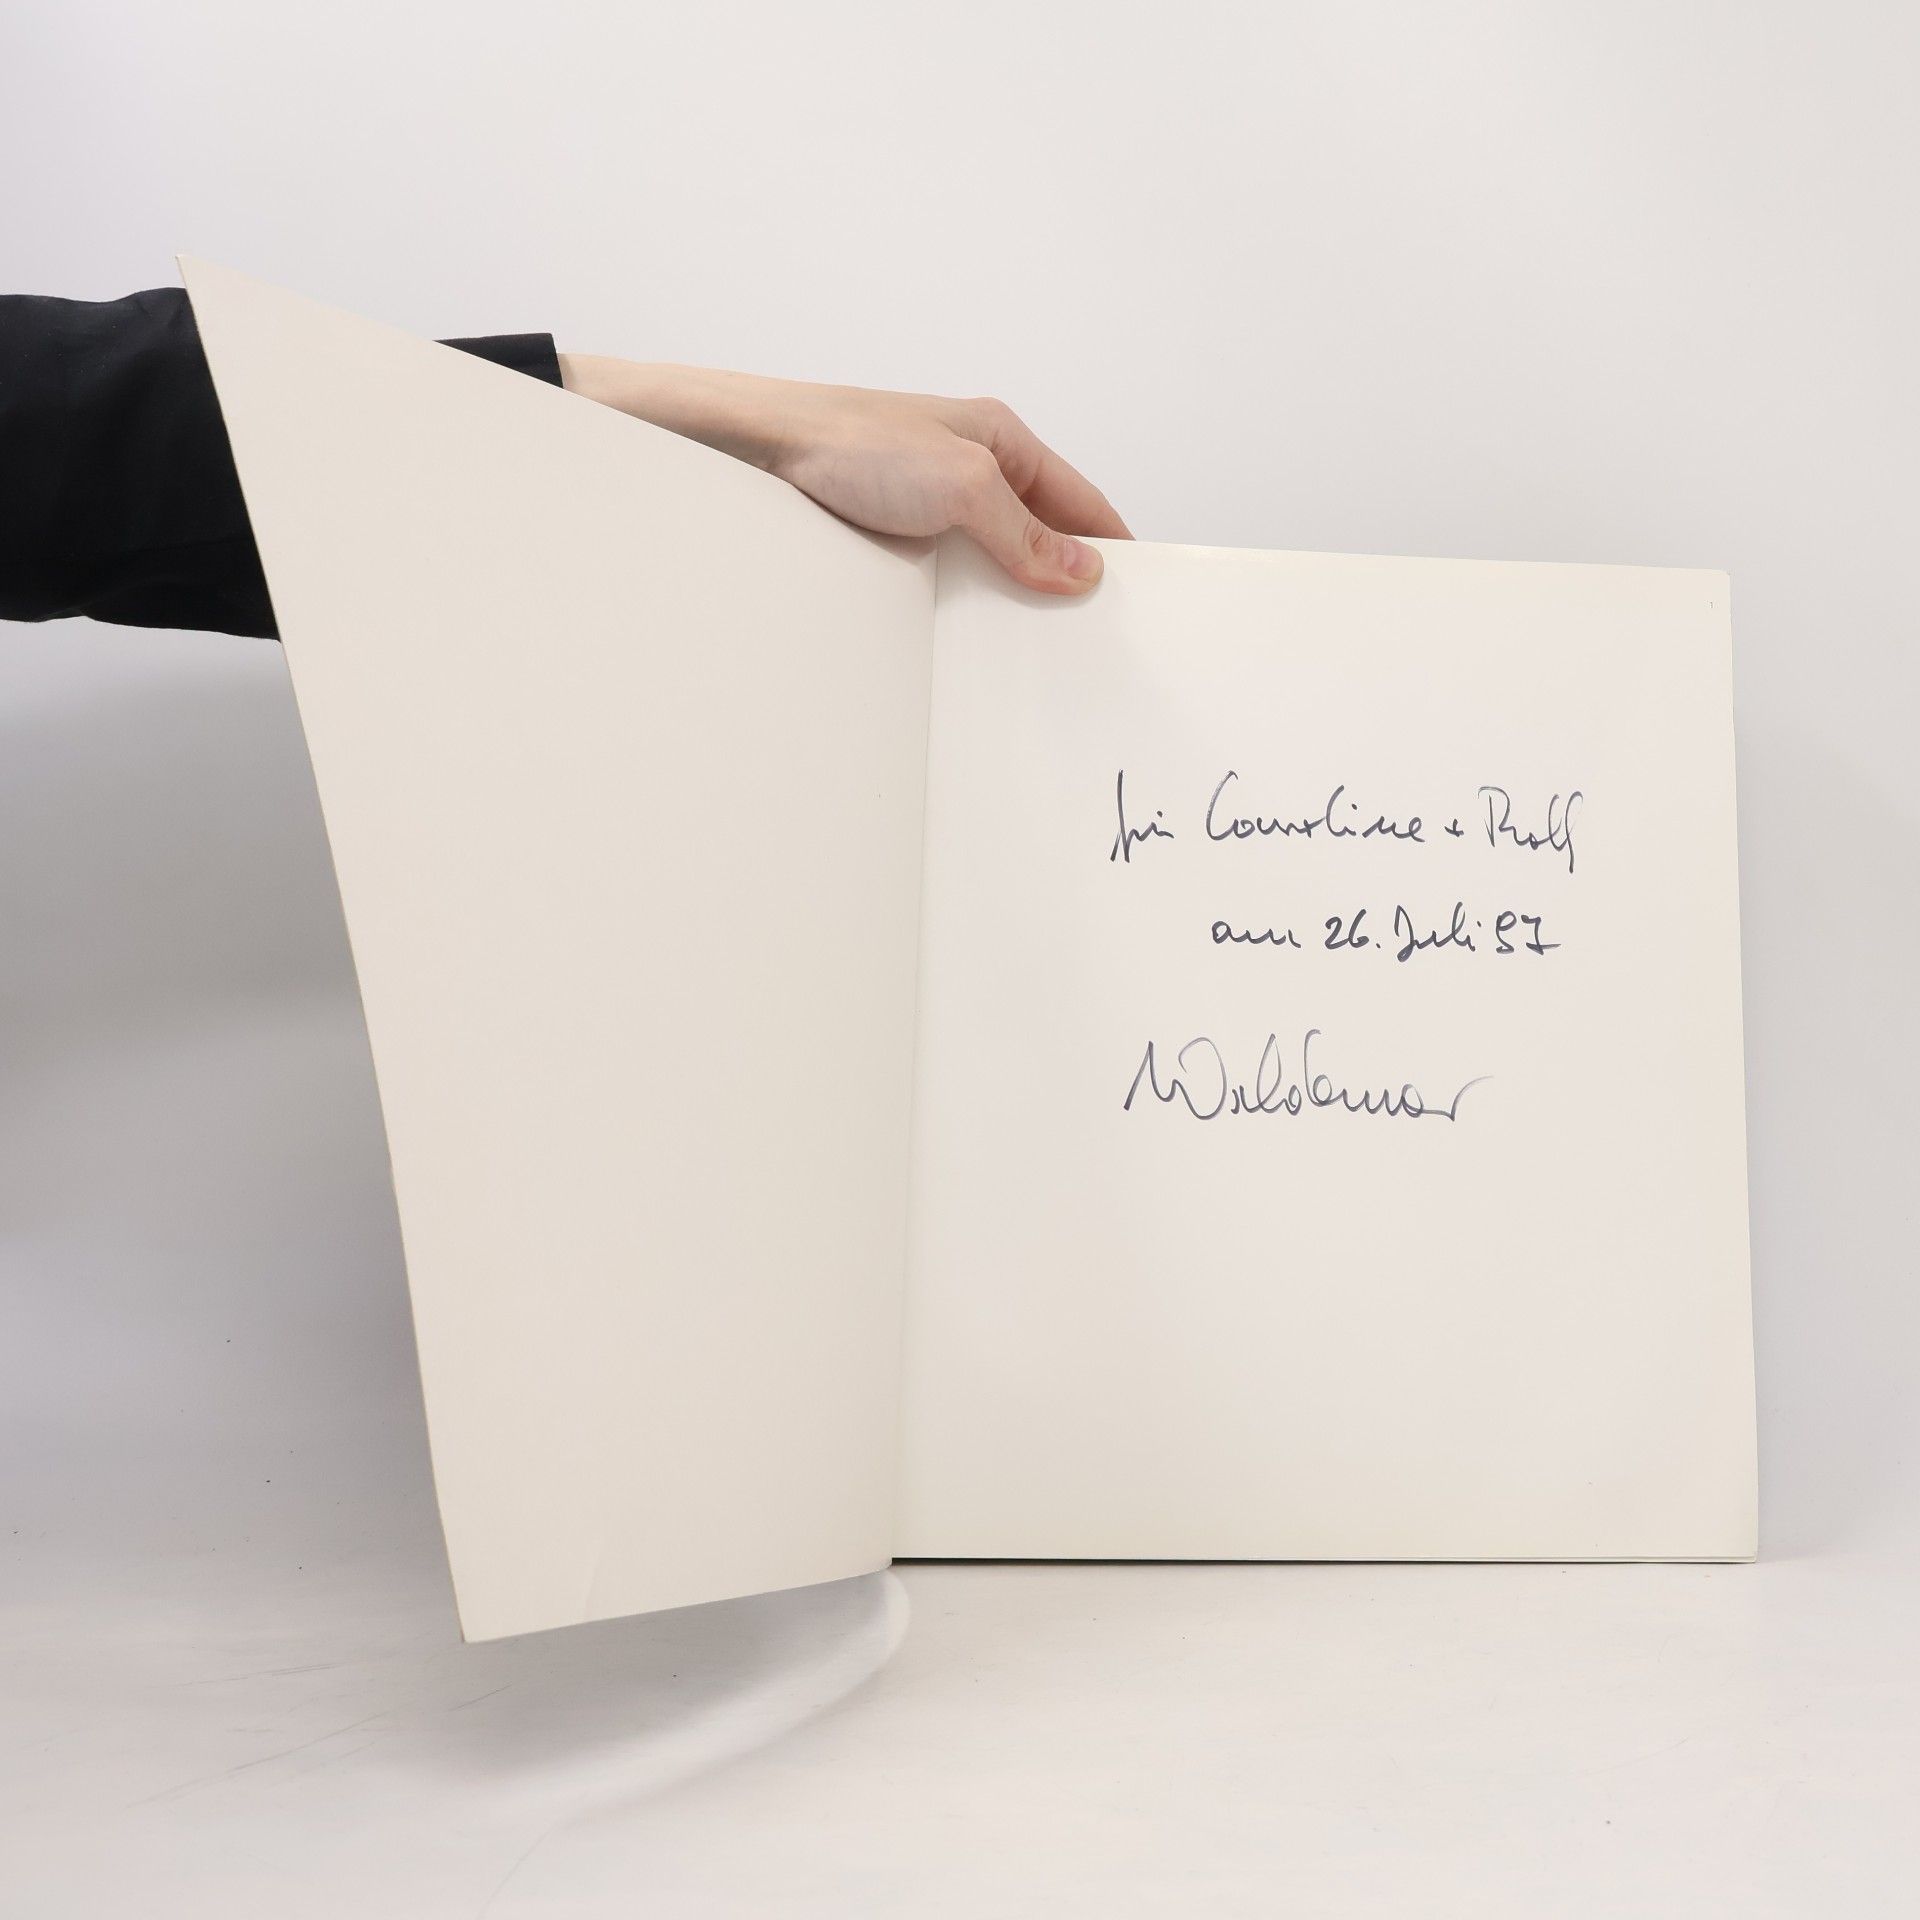 1
für Caroline + Rolf
am 26. Juli 97
Waldemar